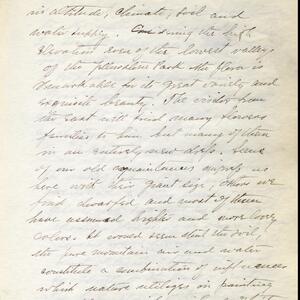 in altitude, climate, soil and
water supply. Considering the high
elevation even of the lowest valleys
of the Park the flora is
remarkable for its great variety and
exquisite beauty. The visitor from
the East will find many flowers
familiar to him, but many of them
in an entirely new dress. Some
of our old acquaintances surprise us
here with their giant size, others we
find dwarfed and most of them
have assumed brighter and more lovely
colors. It would seem that the soil,
the pure mountain air and water
constitute a combination of influences
which nature utilizes in painting